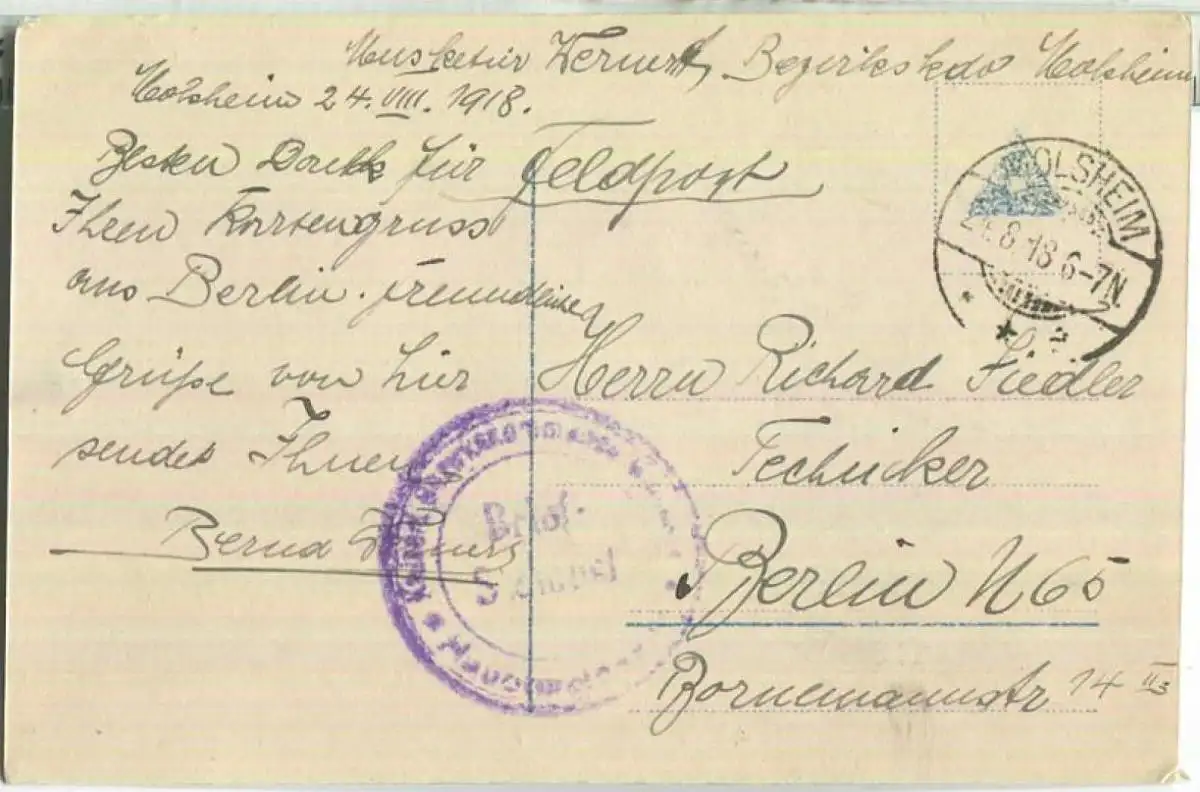 Musketier Werner, Bezirkskdo Molsheim
Molsheim 24. VIII. 1918.
Besten Dank für
Ihren Kartengruss
aus Berlin. Freundliche
Grüße von hier
sendet Ihnen
Bernd
Feldpost
MOLSHEIM
24.8.18 6-7N.
Herrn Richard Fiedler
Technicker
Berlin N 65
Bornemannstr 14 II3
Brief-